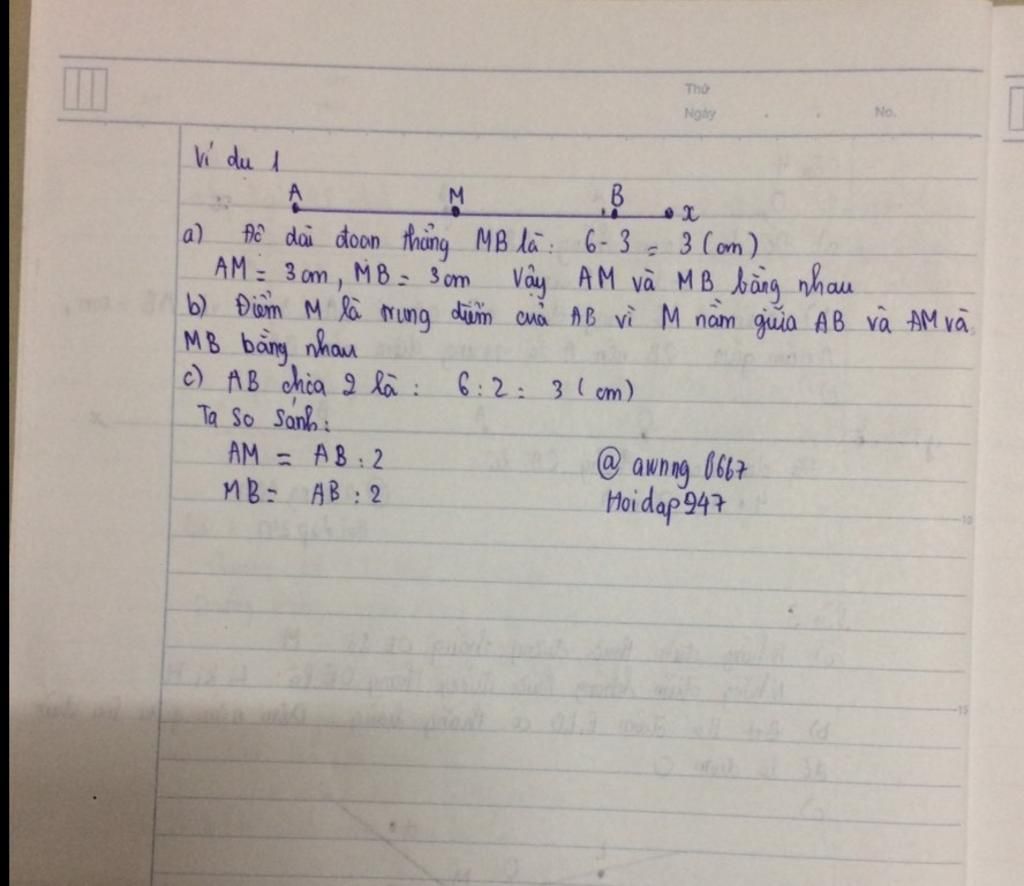 Thứ
Ngày . . No.
Ví dụ 1
A M B x
a) Độ dài đoạn thẳng MB là: 6 - 3 = 3 (cm)
AM = 3 cm, MB = 3 cm Vậy AM và MB bằng nhau
b) Điểm M là trung điểm của AB vì M nằm giữa AB và AM và
MB bằng nhau
c) AB chia 2 là: 6 : 2 = 3 (cm)
Ta so sánh:
AM = AB : 2
MB = AB : 2
@ awnng 0667
Hoidap247
10
15